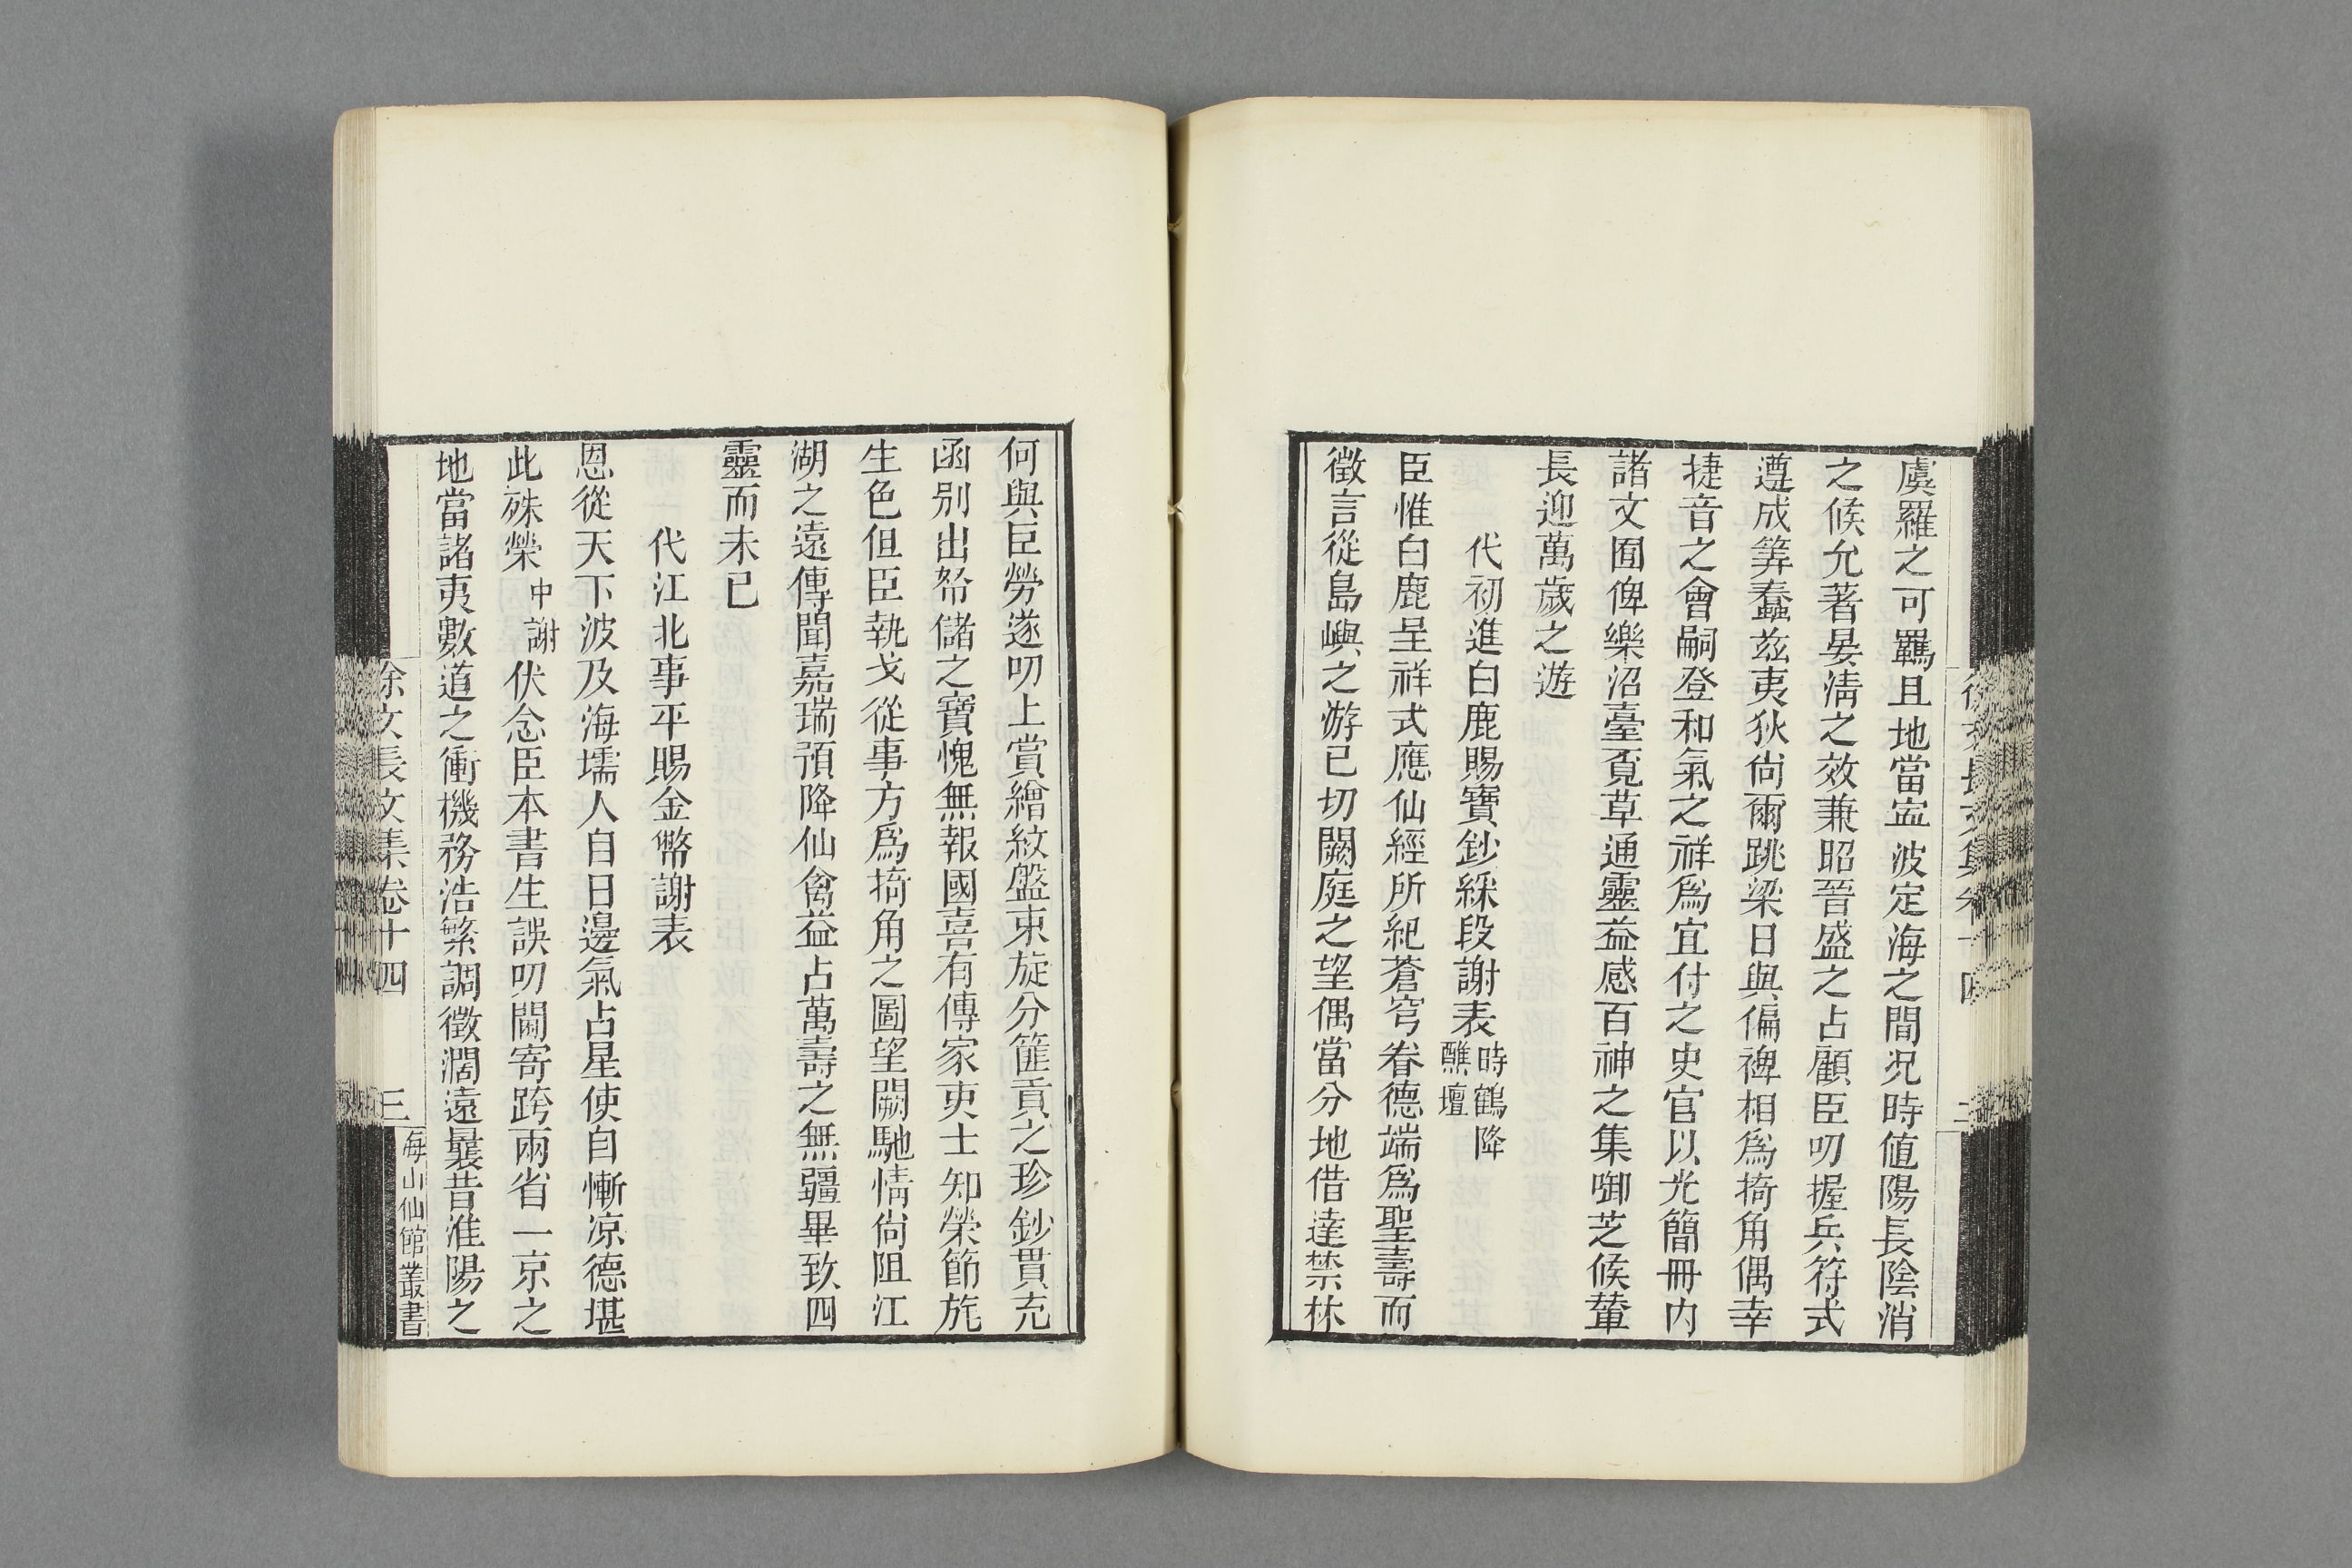 虞羅之可羈且地當寍波定海之間況時値陽長陰消
之候允著晏淸之效兼昭晉盛之占顧臣叨握兵符式
遵成筭蠢兹夷狄尙爾跳梁日與偏裨相爲掎角偶幸
捷音之會嗣登和氣之祥爲宜付之史官以光簡冊內
諸文囿俾樂沼臺覔草通靈益感百神之集啣芝候輦
長迎萬歲之遊
代初進白鹿賜寶鈔綵段謝表時鶴降
醮壇
臣惟白鹿呈祥式應仙經所紀蒼穹眷德端爲聖壽而
徵言從島嶼之游已切闕庭之望偶當分地借達禁林
何與臣勞遂叨上賞繒紋盤束旋分篚貢之珍鈔貫充
函别出帑儲之寶愧無報國喜有傳家吏士知榮節旄
生色但臣執戈從事方爲掎角之圖望闕馳情尙阻江
湖之遠傳聞嘉瑞預降仙禽益占萬壽之無疆畢致四
靈而未已
代江北事平賜金幣謝表
恩從天下波及海壖人自日邊氣占星使自慚凉德堪
此殊榮中謝伏念臣本書生誤叨閫寄跨兩省一京之
地當諸夷數道之衝機務浩繁調徵濶遠曩昔淮陽之
徐文長文集卷十四
三
海山仙館叢書